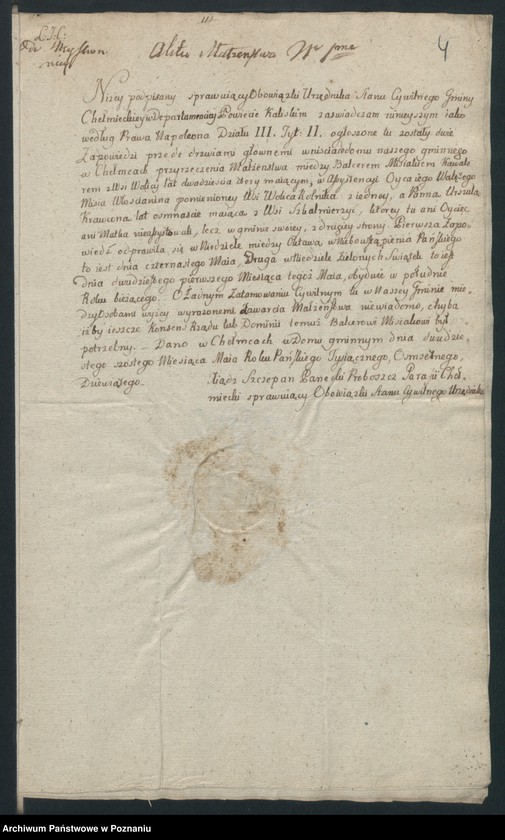 4
Niżey podpisany sprawuiący Obowiązki Urzędnika Stanu Cywilnego Gminy
Chełmieckiey w Departamencie y Powiecie Kaliskim zaświadczam ninieyszym iako
według Prawa Napoleona Działu III. Tyt: II. ogłoszone tu zostały dwie
Zapowiedzi przede drzwiami głownemi naszego gminnego
w Chełmcach przyrzeczenia Małżeństwa między Balcerem Misialem Kawale
rem z Wsi Wolicy lat dwadzieścia maiącym, w Assystencyi Oyca iego Walętego
Misia Włoscianina pomienioney Wsi Wolica Rolnika z iedney, a Panną Urszulą
Krawcową lat osmnaście maiącą z Wsi Szkalmierzyc, ktorey tu ani Oyciec
ani Matka lecz w gminie swoiey, z drugiey strony. Pierwsza Zapo-
wiedź odprawiła się w Niedziele między Oktawą Wniebowstąpienia Pańskiego
to iest dnia czternastego Maia, Druga w Niedziele Zielonych Świątek to iest
dnia dwudziestego pierwszego Miesiąca tegoż Maia, obydwie w południe
Roku bieżącego. O Żadnym Zatamowaniu Cywilnym tu w Naszey Gminie mie-
dzy Osobami wyżey wyrażonemi Zawarcia Małżeństwa niewiadomo, chyba
iżby ieszcze Konsens Rządu lub Dominii temuż Balcerowi Misialowi był
potrzebny. – Dano w Chełmcach w Domu gminnym dnia dwudzie-
stego szostego Miesiąca Maia Roku Pańskiego Tysiącznego, Osmsetnego,
Dziewiątego.
Xiądz Szczepan Panecki Proboszcz Parafii Cheł-
miecki sprawuiący Obowiązki Stanu Cywilnego Urzędnika
Archiwum Państwowe w Poznaniu